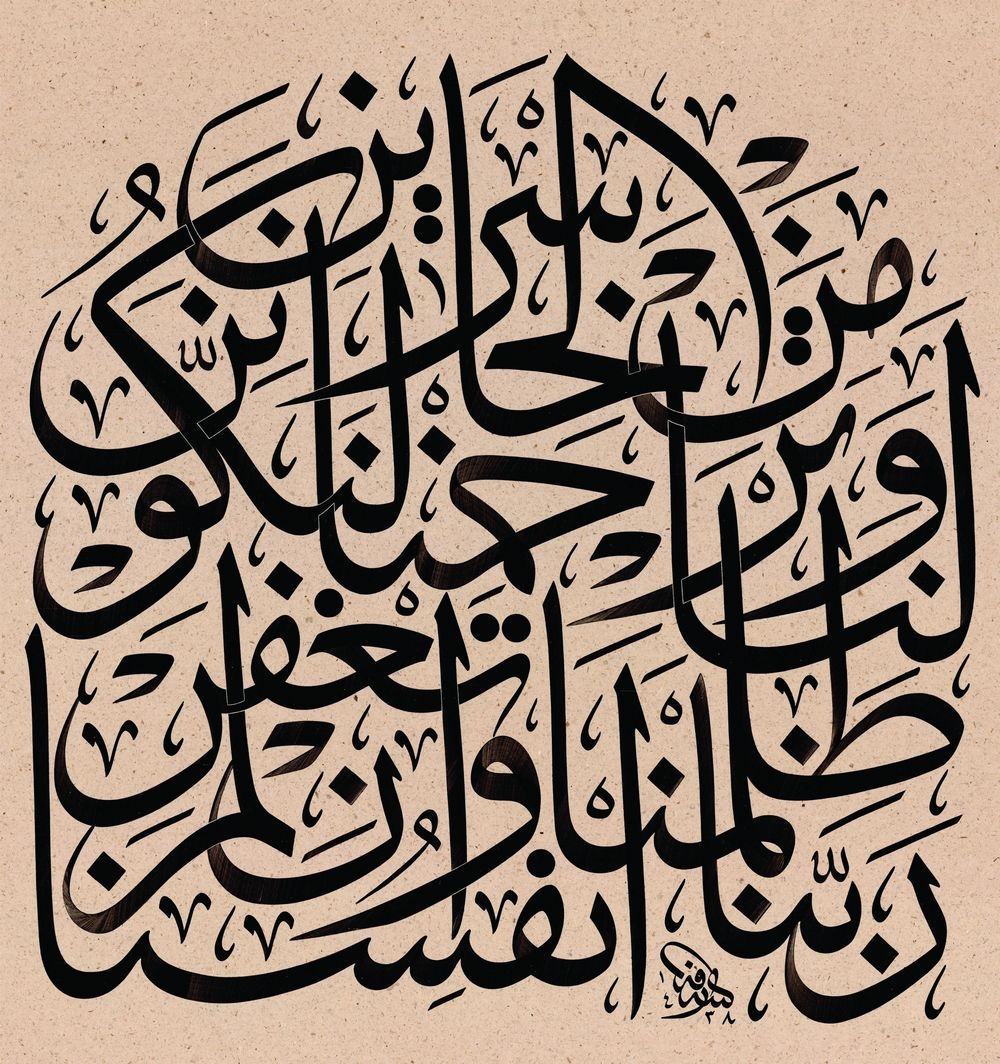 ربنا ظلمنا أنفسنا وإن لم تغفر لنا وترحمنا لنكونن من الخاسرين
١٤٣٨